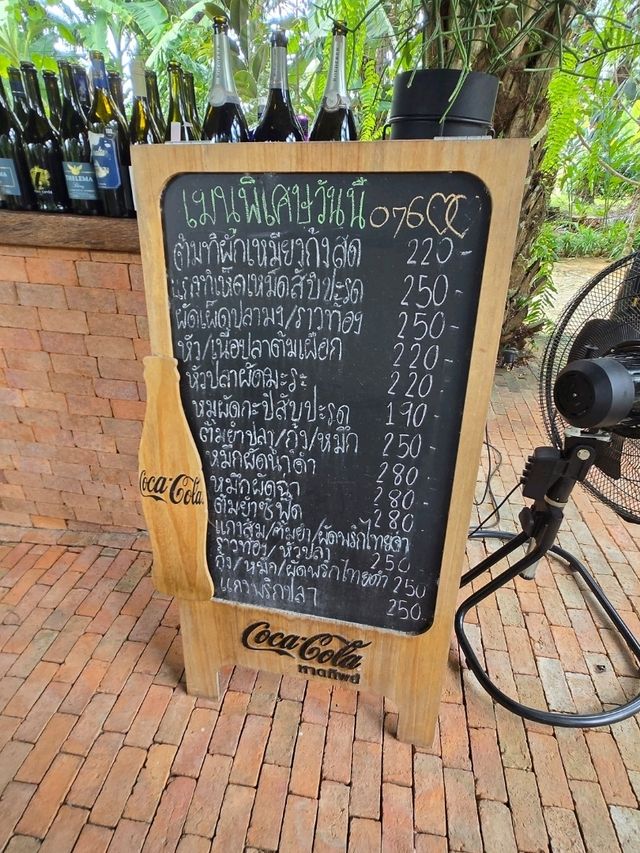 เมนูพิเศษวันนี้ 076
ต้มกะทิผักเหมียงกุ้งสด 220-
แรกาเห็ดเหม็ดสับปะรด 250-
ผัดเผ็ดปลามง/ราวท้อง 250-
หัว/เนื้อปลาต้มเผือก 220-
หัวปลาผัดมะระ 220
หมูผัดกะปิสับปะรด 190-
ต้มยำปลา/กุ้ง/หมึก 250-
หมึกผัดน้ำดำ 280
หมึกผัดฉ่า 280-
ต้มยำซีฟู้ด 280
แกงส้ม/ต้มยำ/ผัดพริกไทยดำ
ราวท้อง/หัวปลา 250
กุ้ง/หมึก/ผัดพริกไทยดำ 250
แกงพริกปลา 250.
Coca-Cola
Coca-Cola
หาดทิพย์